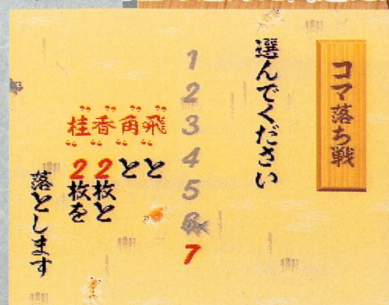 コマ落ち戦
選んでください
1
2
3
4
5
6
7
〝飛〟と
〝角〟と
〝香〟2枚と
〝桂〟2枚を
落とします